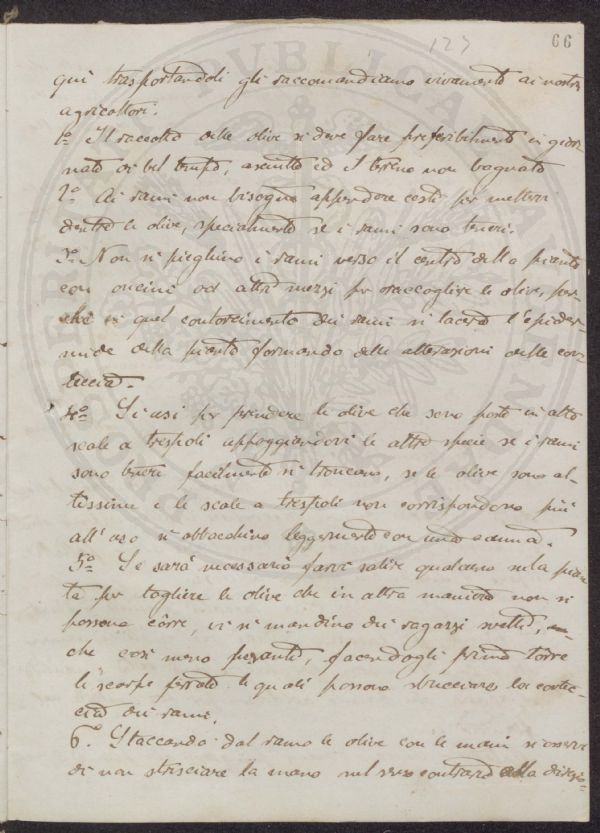 127 66
qui trasportandoli gli raccomandiamo vivamente ai nostri
agricoltori.
1º Il raccolto delle olive si deve fare preferibilmente in gior-
nate di bel tempo, asciutto ed il terreno non bagnato
2º Ai rami non bisogna appendere cesti per mettervi
dentro le olive, specialmente se i rami sono teneri.
3º Non si pieghino i rami verso il centro della pianta
con oncini od altri mezzi per raccogliere le olive, per-
chè in quel contorcimento dei rami si lacera l'epider-
mide della pianta formando delle alterazioni nelle cor-
teccia.
4º Si usi per prendere le olive che sono poste in alto
scale a trespoli appoggiandovi le altre specie se i rami
sono teneri facilmente si troncano, se le olive sono al-
tissime e le scale a trespoli non corrispondono più
all'uso si abbacchino leggermente con una canna.
5º Se sarà necessario farvi salire qualcuno sulla pian-
ta per togliere le olive che in altra maniera non si
possono côrre, vi si mandino dei ragazzi svelti,
che così meno pesanti, facendogli prima torre
le scarpe ferrate le quali possono sbucciare la cortec-
cia dei rami.
6º Staccando dal ramo le olive con le mani si osservi
di non strisciare la mano nel senso contrario alla direzio-